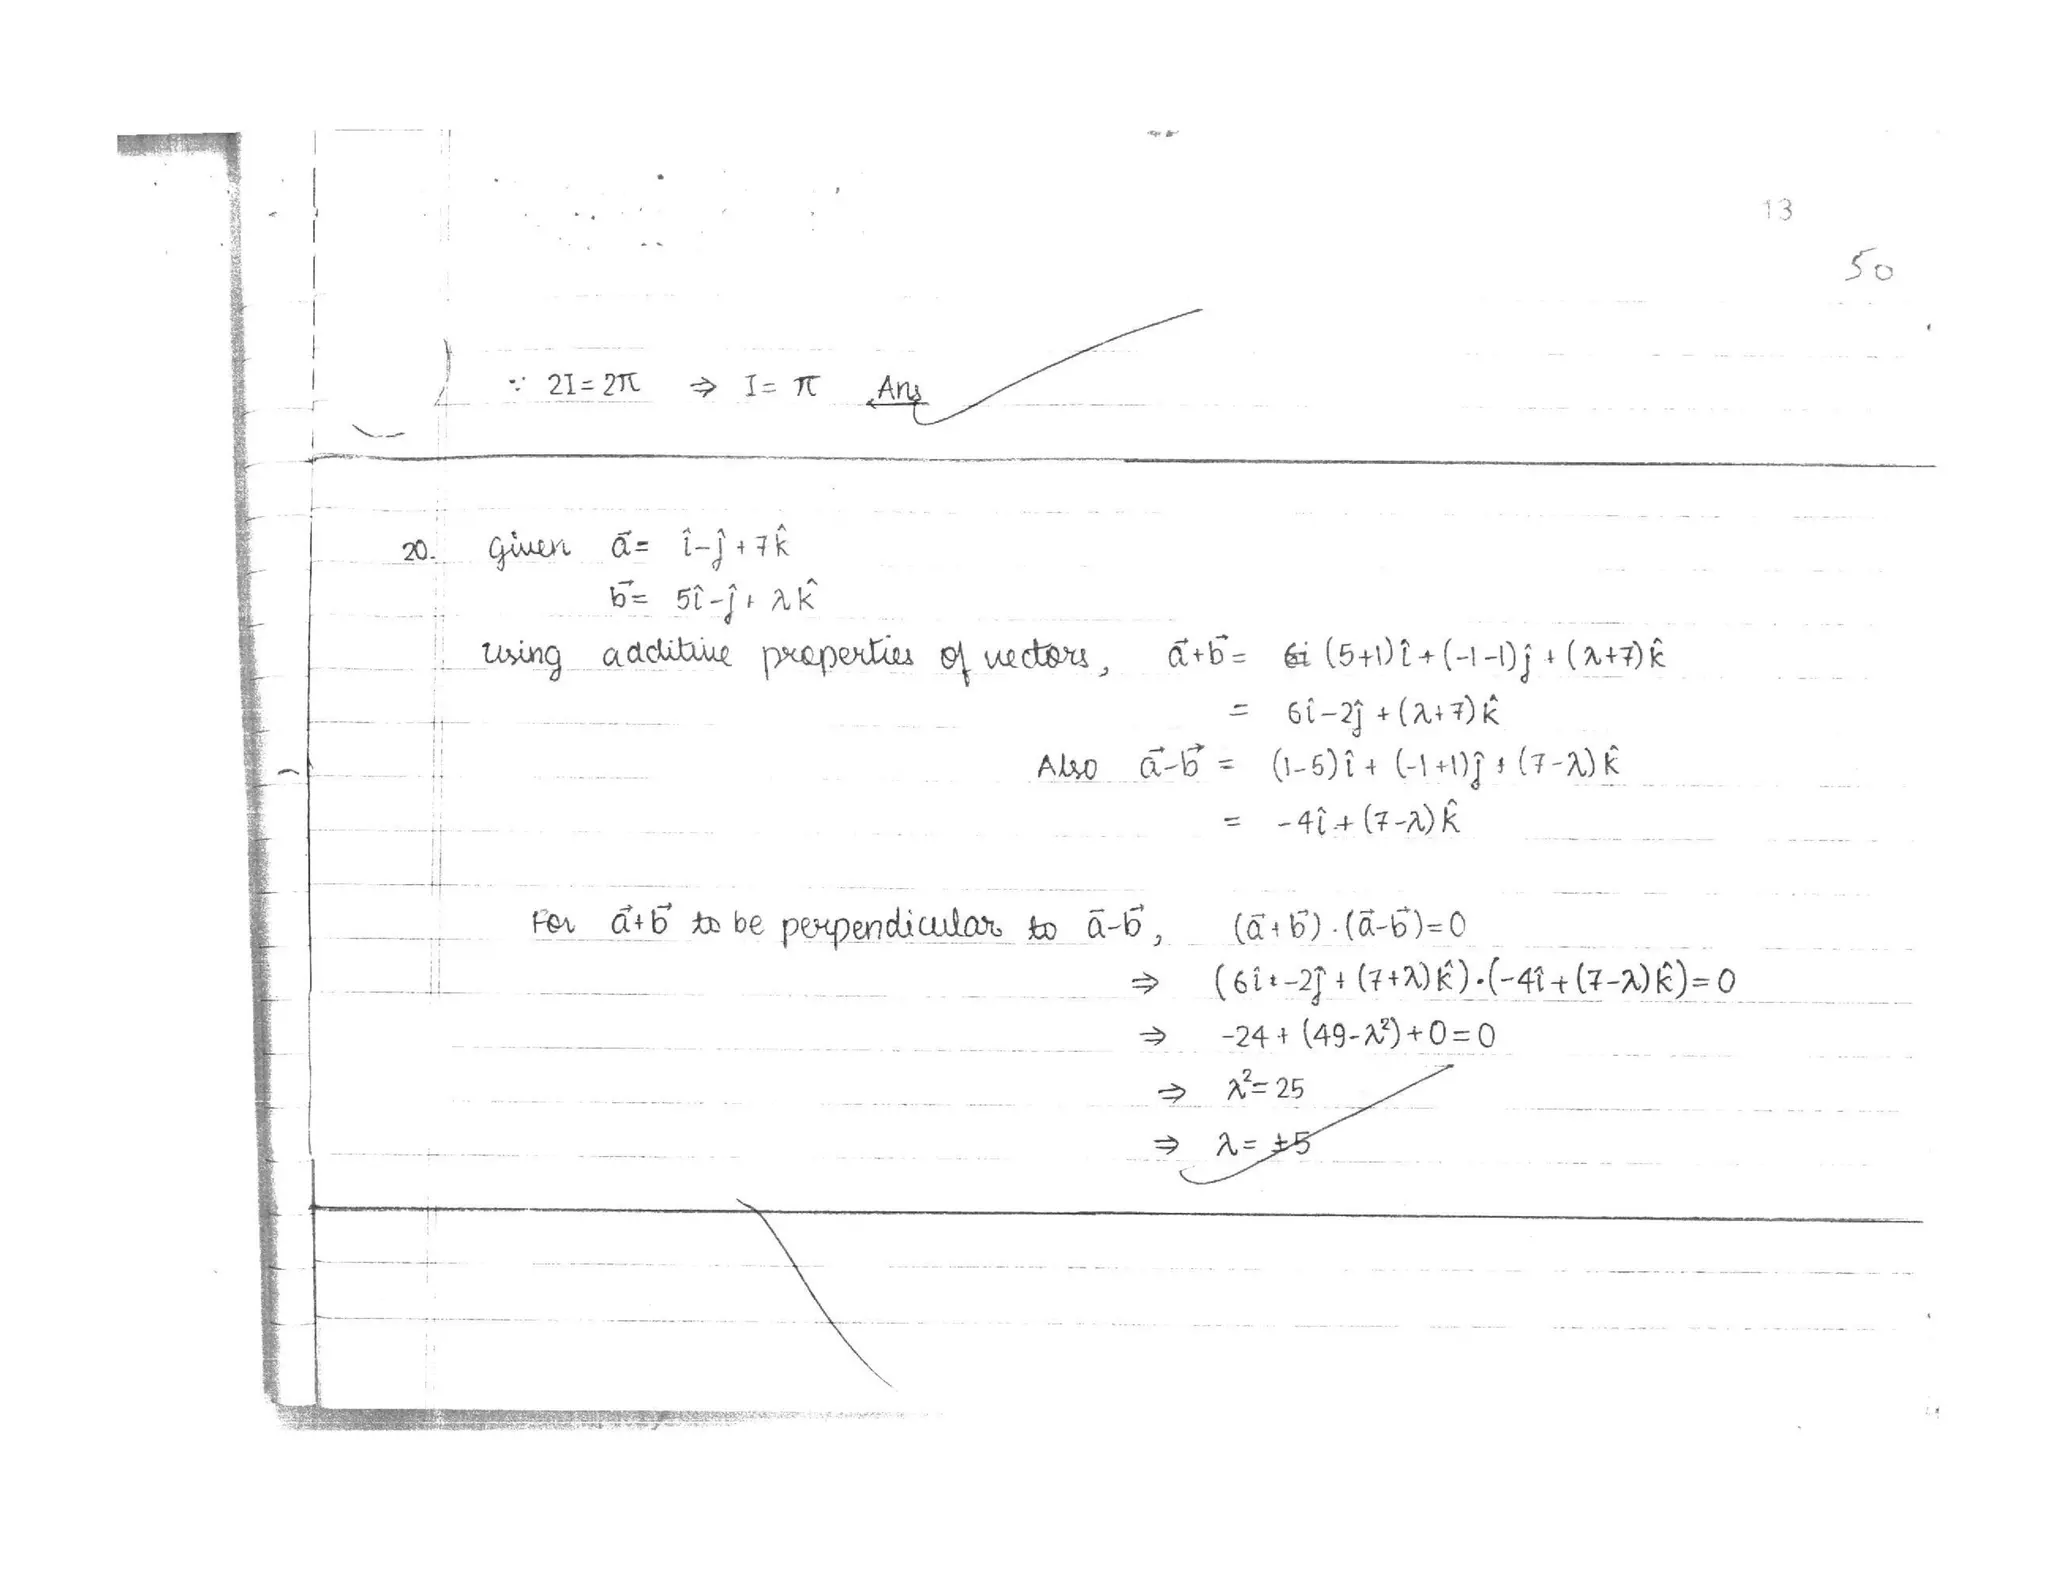 13
50
∵ 2I = 2π ⇒ I = π Ans
20. Given a⃗ = î - ĵ + 7k̂
b⃗ = 5î - ĵ + λk̂
Using additive properties of vectors, a⃗+b⃗ = (5+1)î + (-1-1)ĵ + (λ+7)k̂
= 6î - 2ĵ + (λ+7)k̂
Also a⃗-b⃗ = (1-5)î + (-1+1)ĵ + (7-λ)k̂
= -4î + (7-λ)k̂
For a⃗+b⃗ to be perpendicular to a⃗-b⃗, (a⃗+b⃗).(a⃗-b⃗)=0
⇒ (6î + -2ĵ + (7+λ)k̂).(-4î + (7-λ)k̂) = 0
⇒ -24 + (49-λ²) + 0 = 0
⇒ λ² = 25
⇒ λ = ±5